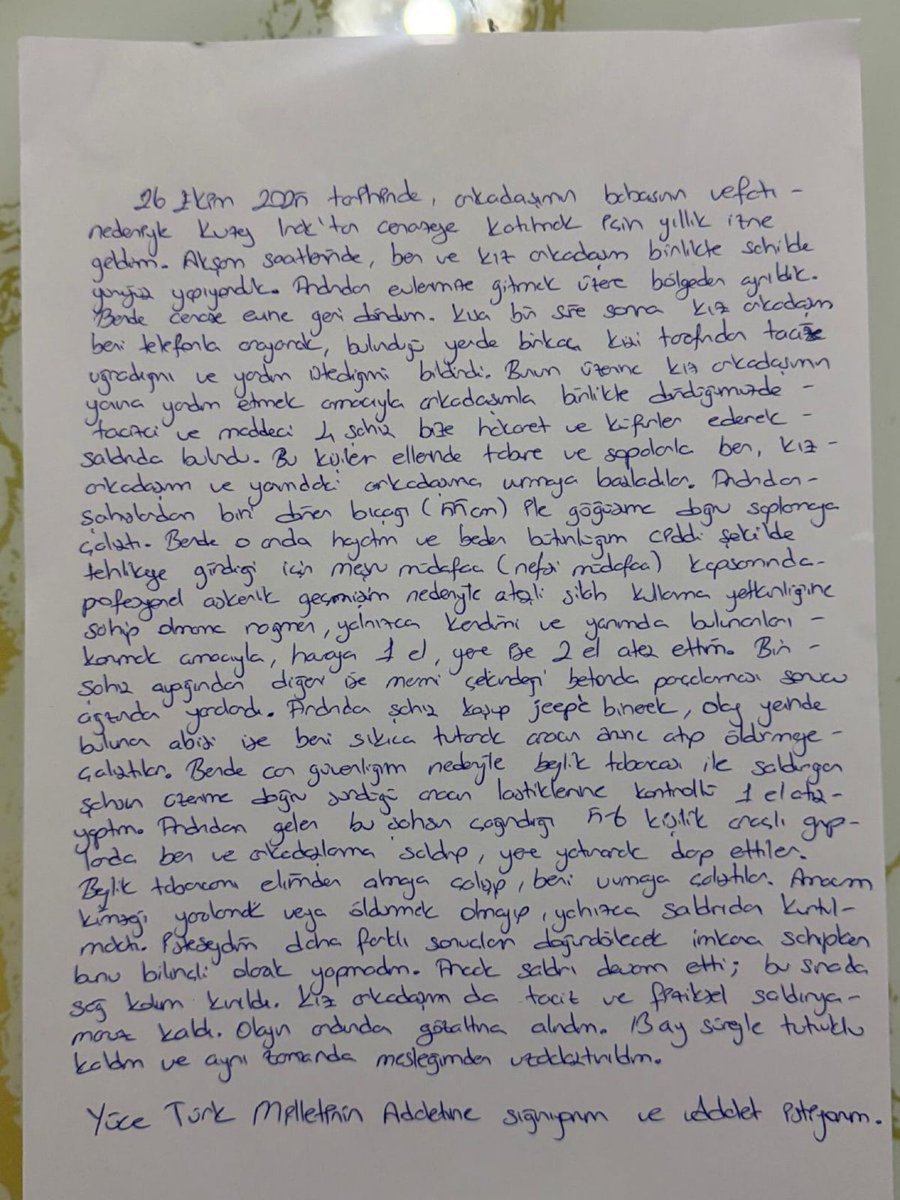 26 Ekim 2025 tarihinde, arkadaşımın babasının vefatı -
nedeniyle Kuzey Irak'tan cenazeye katılmak için yıllık izne
geldim. Akşam saatlerinde, ben ve kız arkadaşım birlikte sahilde
yürüyüş yapıyorduk. Ardından evlerimize gitmek üzere bölgeden ayrıldık.
Bende cenaze evine geri döndüm. Kısa bir süre sonra kız arkadaşım
beni telefonla arayarak, bulunduğu yerde birkaç kişi tarafından tacize
uğradığını ve yardım istediğini bildirdi. Bunun üzerine kız arkadaşımın
yanına yardım etmek amacıyla arkadaşımla birlikte döndüğümüzde -
tacizci ve maddeci 4 şahıs bize hakaret ve küfürler ederek -
saldırıda bulundu. Bu kişiler ellerinde tabure ve sopalarla ben, kız -
arkadaşım ve yanımdaki arkadaşıma vurmaya başladılar. Ardından -
şahıslardan biri döner bıçağı ile göğsüme doğru saplamaya
çalıştı. Bende o anda hayatım ve beden bütünlüğüm ciddi şekilde
tehlikeye girdiği için meşru müdafaa (nefsi müdafaa) kapsamında -
pofesyonel askerlik geçmişim nedeniyle ateşli silah kullanma yetkinliğine
sahip olmama rağmen, yalnızca kendimi ve yanımda bulunanları -
korumak amacıyla, havaya 1 el, yere ise 2 el ateş ettim. Bir -
şahıs ayağından diğer ise mermi çekirdeği betonda parçalanması sonucu
ağzından yaralandı. Ardından şahıs kaçıp jeep'e binerek, olay yerinde
bulunan abisi ise beni sıkıca tutarak aracın önüne atıp öldürmeye -
çalıştılar. Bende can güvenliğim nedeniyle beylik tabancası ile saldırgan
şahsın üzerime doğru sürdüğü aracın lastiklerine kontrollü 1 el atış
yaptım. Ardından gelen bu şahsın çağırdığı 5-6 kişilik araçlı grup-
larda ben ve arkadaşlarıma saldırıp, yere yatırarak darp ettiler.
Beylik tabancamı elimden almaya çalışıp, beni vurmaya çalıştılar. Amacım
kimseyi yaralamak veya öldürmek olmayıp, yalnızca saldırıdan kurtul-
maktı. İsteseydim daha farklı sonuçları doğurabilecek imkana sahipken
bunu bilinçli olarak yapmadım. Ancak saldırı devam etti; bu sırada
sağ kolum kırıldı. Kız arkadaşım da taciz ve fiziksel saldırıya -
maruz kaldı. Olayın ardından gözaltına alındım. 13 ay süreyle tutuklu
kaldım ve aynı zamanda mesleğimden uzaklaştırıldım.
Yüce Türk Milletinin Adaletine sığınıyorum ve adalet istiyorum.